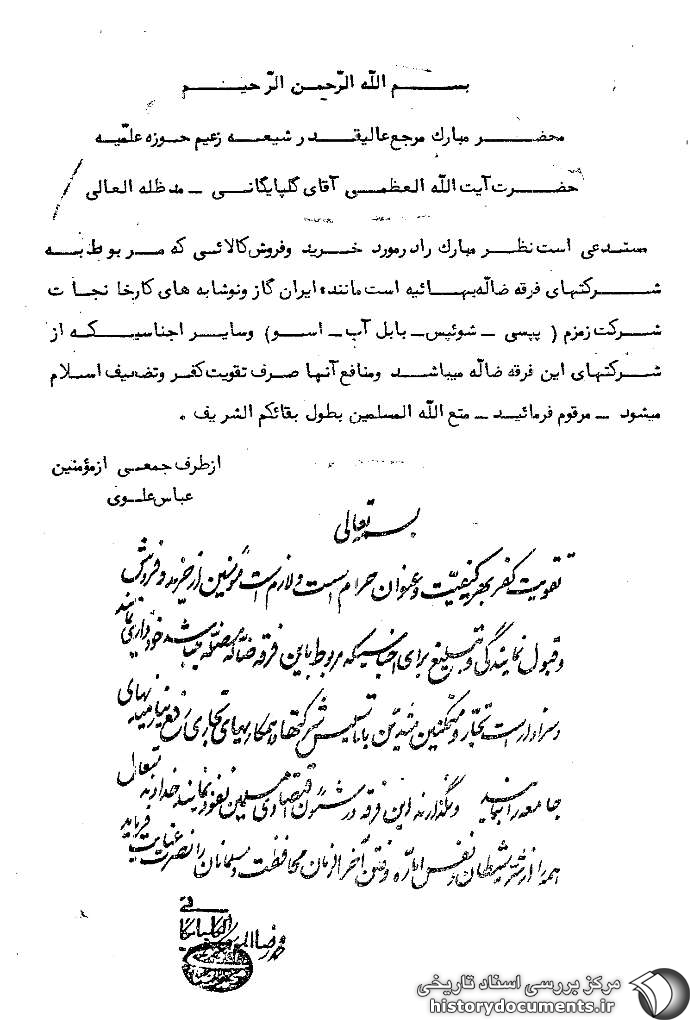 بسم اللّه الرّحمن الرّحیم
محضر مبارك مرجع عالیقدر شیعه زعیم حوزه علمّیه
حضرت آیت اللّه العظمی آقای گلپایگانی ــ مد ظله العالی
مستدعی است نظر مبارك را در مورد خرید و فروش کالائی که مربوط به
شرکتهای فرقه ضالّه بهائیه است مانند، ایران گاز و نوشابه های کارخانجات
شرکت زمزم ( پپسی ــ شوئپس ــ بابل آپ ــ اسو ) وسایر اجناسیکه از
شرکتهای این فرقه ضالّه میباشد ومنافع آنها صرف تقویت کفر وتضعیف اسلام
میشود ــ مرقوم فرمائید ــ متع اللّه المسلمین بطول بقائکم الشریف .
از طرف جمعی از مؤمنین
عباس علوی
بسمه تعالی
تقویت کفر بهر کیفیّت و عنوان حرام است و لازم است مؤمنین از خرید و فروش
و قبول نمایندگی و تبلیغ برای اجناسیکه مربوط باین فرقه ضالّه مضلّه میباشد خودداری نمایند
و سزاوار است تجّار و متمکنین متدیّن با تأسیس شرکتها و همکاریهای تجاری رفع نیازمندیهای
جامعه را بنمایند و نگذارند این فرقه در شئون اقتصادی مسلمین نفوذ نمایند خداوند متعال
همه را از شرّ شیطان و نفس امّاره و فتن آخر الزمان محافظت و مسلمانان را نصرت عنایت فرماید
محمد رضا الموسوی الگلپایگانی
مرکز بررسی اسناد تاریخی
historydocuments.ir